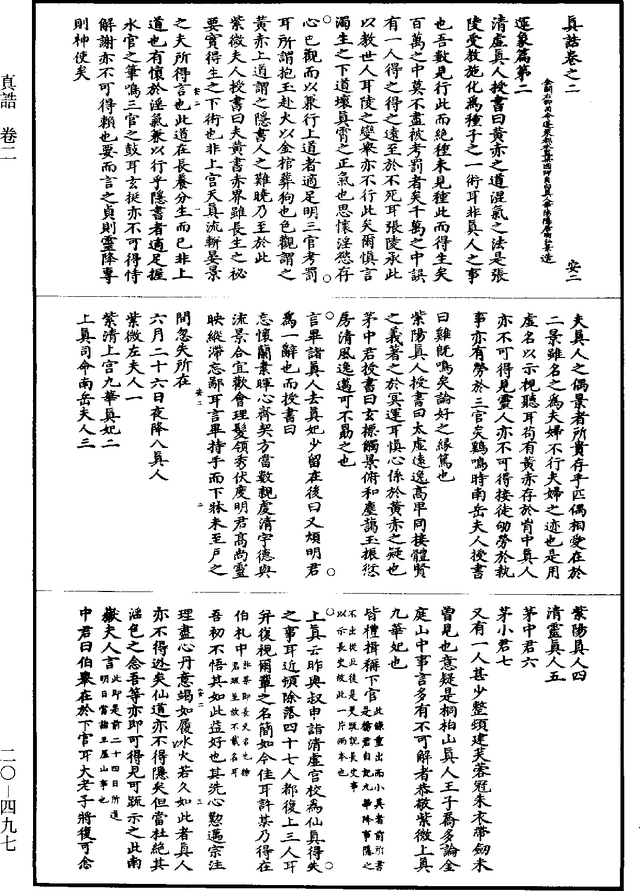 真誥卷之二
安二
金闕右卿司命蓬萊都水監梁國師貞白真人華陽隱居陶弘景造
運象篇第二
清虛真人授書曰黃赤之道混氣之法是張
陵受教施化為種子之一術耳非真人之事
也吾數見行此而絕種未見種此而得生矣
百萬之中莫不盡被考罰者矣千萬之中誤
有一人得之得之遠至於不死耳張陵承此
以教世人耳陵之變舉亦不行此矣爾慎言
濁生之下道壞真霄之正氣也思懷淫慾存
心色觀而以兼行上道者適足明三官考罰
耳所謂抱玉赴火以金棺葬狗也色觀謂之
黃赤上道謂之隱書人之難曉乃至於此
紫微夫人授書曰夫黃書赤界雖長生之祕
要實得生之下術也非上宮天真流軿晏景
之夫所得言也此道在長養分生而已非上
道也有懷於淫氣兼以行乎隱書者適足握
水官之筆鳴三官之鼓耳玄挺亦不可得恃
解謝亦不可得賴也要而言之貞則靈降專
則神使矣
夫真人之偶景者所貴存乎匹偶相愛在於
二景雖名之為夫婦不行夫婦之迹也是用
虛名以示視聽耳苟有黃赤存於胷中真人
亦不可得見靈人亦不可得接徒劬勞於執
事亦有勞於三官矣鷄鳴時南岳夫人授書
曰雞既鳴矣論好之緣篤也
紫陽真人授書曰太虛遠逸高卑同接體賢
之義著之於冥運耳慎心係於黃赤之疑也
茅中君授書曰玄標觸景俯和塵藹玉振愆
房清風逸邁可不勗之也
言畢諸真人去真妃少留在後曰又煩明君
為一辭也而授書曰
忘懷蘭素暉心齊契方當數親虛清宇德與
流景合宜歡會理髮領秀伏度明君高尚靈
映縱滯忘鄙耳言畢持手而下牀未至戶之
間忽失所在
六月二十六日夜降八真人
紫微左夫人一
紫清上宮九華真妃二
上真司命南岳夫人三
紫陽真人四
清靈真人五
茅中君六
茅小君七
又有一人甚少整頓建芙蓉冠朱衣帶劒未
曾見也意疑是桐柏山真人王子喬多論金
庭山中事言多有不可解者恭敬紫微上真
九華妃也
皆禮揖稱下官
上真云昨與叔申詣清虛宮校為仙真得失
之事耳近頓除落四十七人都復上三人耳
并復視爾輩之名簡如今佳耳許某乃得在
伯札中
吾初不悟其如此益好也其洗心勤邁宗注
理盡心丹意竭如履氷火若久如此者真人
亦不得逃矣仙道亦不得隱矣但當杜絕其
淫色之念吾等亦即可得見可疏示之此南
嶽夫人言
此即是前二十四日所道
明日當詣王屋山事也
中君曰伯舉在於下官耳大老子將復可念
真誥 卷二
二〇—四九七